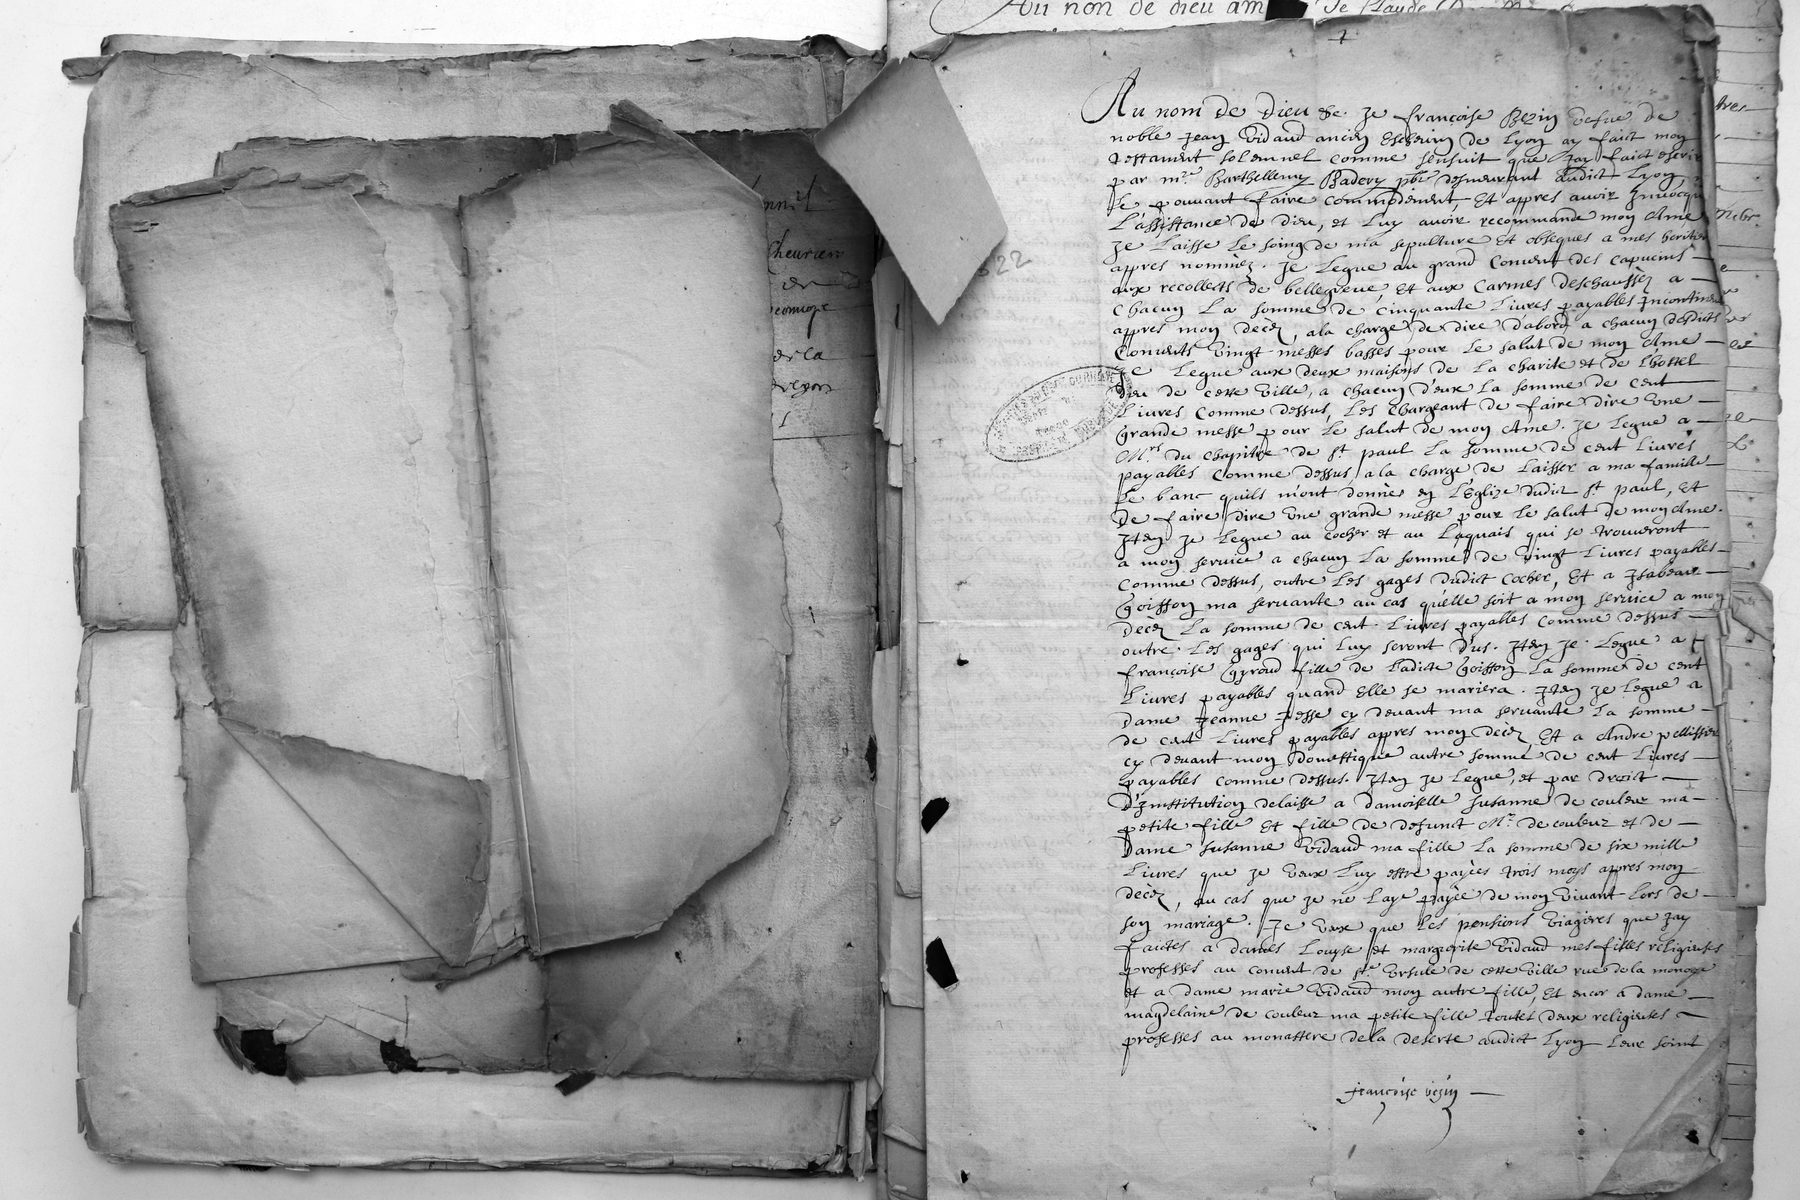 Au non de dieu am Je Claude
Au nom de Dieu &e. Je françoise Bezin vefue de
noble Jean Vidaud ancien Eschevin de Lyon ay faict mon
testament solemnel comme sensuit que Jay faict escrire
par mre. Barthellemy Badery pbre demeurant audict Lyon,
le pouvant faire commodement, Et appres avoir Jnvocqué
L'assistance de Dieu, et Luy avoir recommandé mon Ame
Je Laisse Le soing de ma sepulture Et obseques a mes heritiers
appres nommèz. Je Legue au grand Convent des capucins
aux recollects de bellegreve, Et aux Carmes deschaussèz a
Chacun La somme de cinquante Livres payables Incontinent
appres mon decèz, ala charge de dire d'abord a chacun desdicts
Convents vingt messes basses pour Le salut de mon Ame
Je Legue aux deux maisons de La charite et de l'hostel
Dieu de cette Ville, a chacun d'eux La somme de cent
Livres Comme dessus, Les chargeant de faire dire Une
grande messe pour Le salut de mon Ame. Je Legue a
Mrs du chapitre de st. paul La somme de cent Livres
payables Comme dessus, a la charge de Laisser a ma famille
Le banc quils m'ont donné en L'Eglize dudit st. paul, Et
de faire dire Une grande messe pour Le salut de mon Ame.
Jtem Je Legue au cocher et au Laquais qui se trouveront
a mon service a chacun La somme de vingt Livres payables
Comme dessus, outre Les gages dudict Cocher, Et a Jsabeau
Goisson ma servante au cas qu'elle soit a mon service a mon
Decèz La somme de cent Livres payables Comme dessus
outre Les gages qui Luy seront D'us. Jtem Je Legue a
françoise Gyroud fille de Ladicte Goisson La somme de cent
Livres payables quand Elle se mariera. Jtem Je Legue a
Dame Jeanne Jesse cy devant ma servante La somme
de cent Livres payables appres mon decèz Et a Andre pellissier
cy devant mon Domestique autre somme de cent Livres
payables comme dessus. Jtem Je Legue, et par droict
D'Jnstitution delaisse a damoiselle Susanne de couleur ma
petite fille Et fille de defunct Mr. de couleur et de
Dame Susanne Vidaud ma fille La somme de six mille
Livres que Je veux Luy estre payèes trois moys appres mon
decèz, au cas que Je ne Laye payèe de mon vivant Lors de
son mariage. Je veux que Les pensions Viageres que Jay
faictes a dames Louyse et margarite Vidaud mes filles religieuses
professes au convent de ste. Ursule de cette Ville rue de la monoye
et a dame marie Vidaud mon autre fille, Et encor a dame
magdelaine de couleur ma petite fille toutes deux religieuses
professes au monastere dela deserte audict Lyon Leur soint
françoise besin